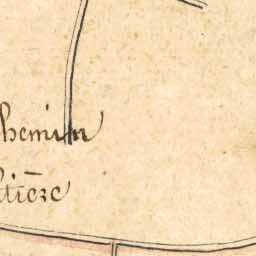 hemin
tière